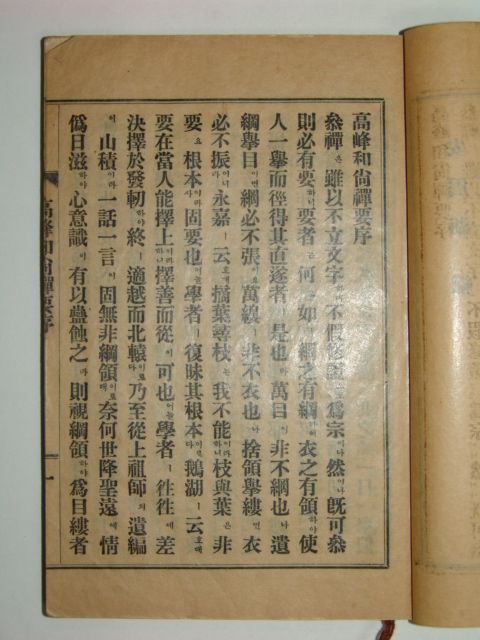 高峰和尙禪要序
叅禪은雖以不立文字하며不假修證으로爲宗이나然이나旣可叅
則必有要하니要者는何오如網之有綱하며衣之有領하야使
人一擧而徑得其直遂者ㅣ是也라萬目이非不網也나遺
綱擧目이면網必不張이오萬縷ㅣ非不衣也나捨領擧縷면衣
必不振이니永嘉ㅣ云호대摘葉尋枝는我不能이라하니枝與葉은非
要요根本사固要也어늘學者ㅣ復昧其根本이로다鵝湖ㅣ云호대
要在當人能擇上이라하니擇善而從이可也어늘學者ㅣ徃徃에差
決擇於發軔하야終ㅣ適越而北轅이로다乃至從上祖師의遺編
이山積이라一話一言이固無非綱領이로대奈何世降聖遠에情
僞日滋하야心意識이有以蠱蝕之라則視綱領하야爲目縷者
高峰和尙禪要序
一